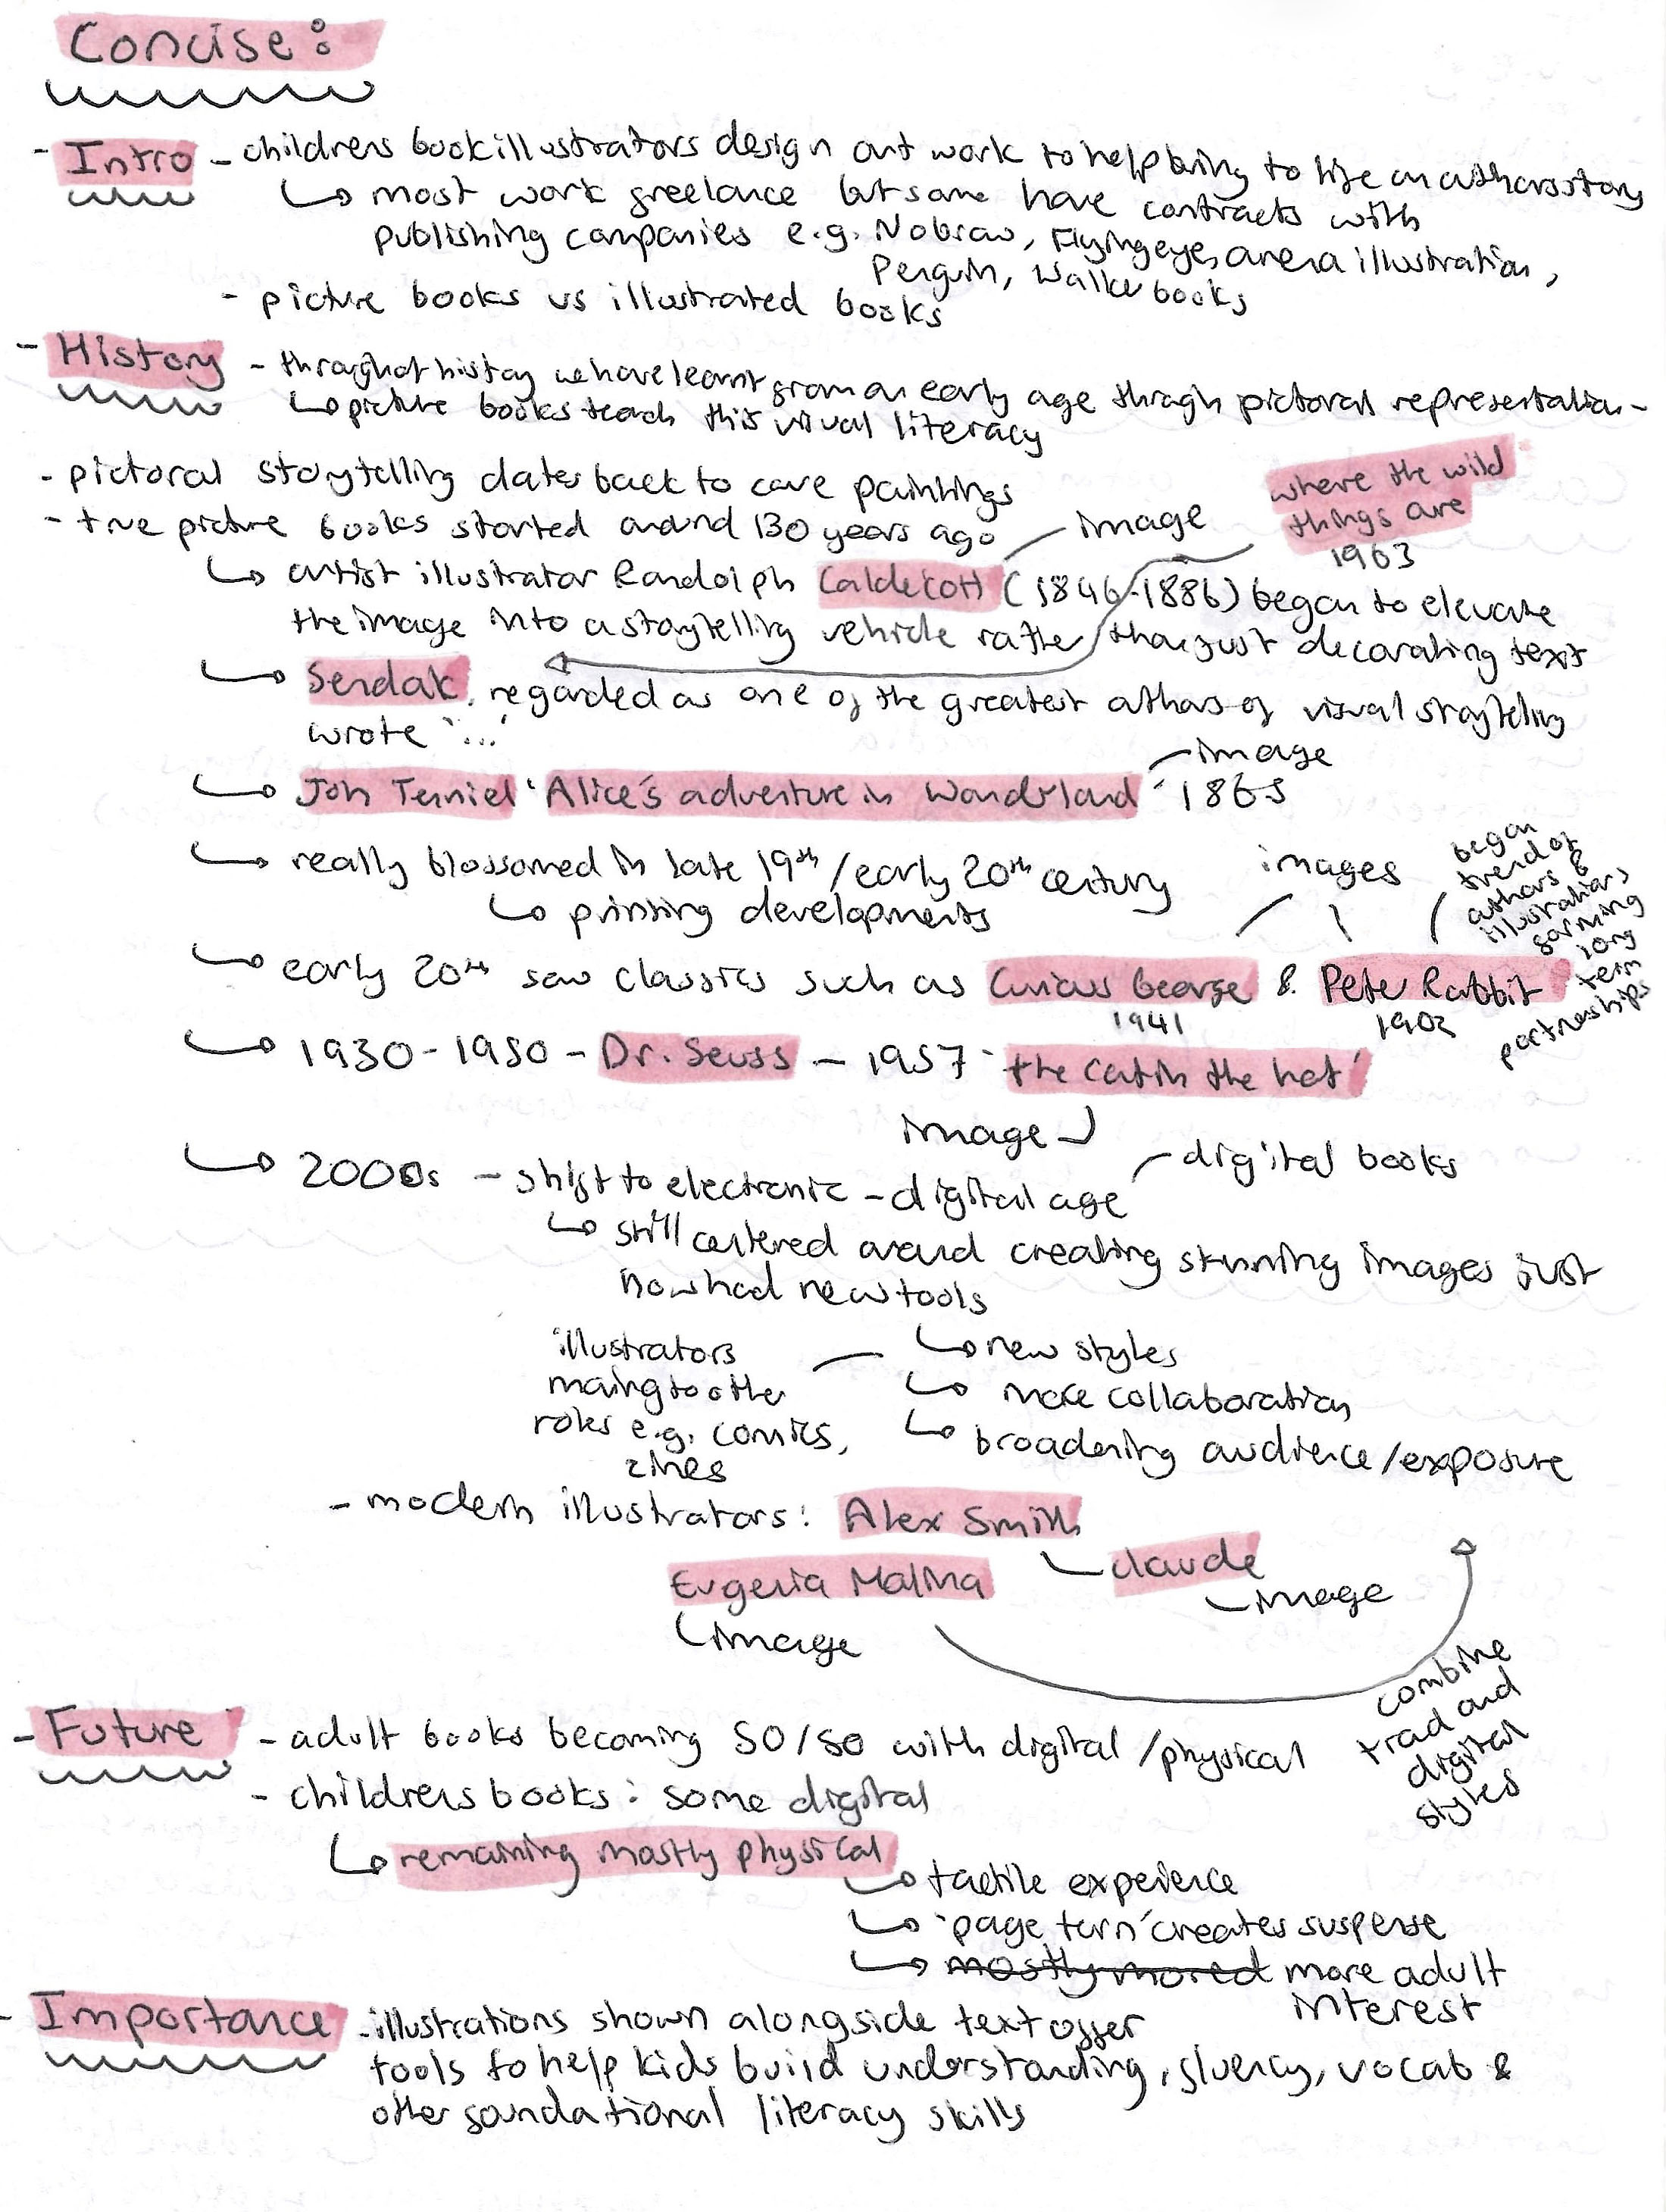 Concise:
- Intro - childrens book illustrators design art work to help bring to life an authors story
↳ most work freelance but some have contracts with
publishing companies e.g. Nobrow, Flyingeye, arena illustration,
Penguin, Walker books
- picture books vs illustrated books
- History - throughout history we have learnt from an early age through pictoral representation -
↳ picture books teach this visual literacy
- pictoral storytelling dates back to cave paintings
where the wild
things are
1963
- true picture books started around 130 years ago
image
↳ artist illustrator Randolph Caldecott (1846-1886) began to elevate
the image into a storytelling vehicle rather than just decorating text
↳ Sendak, regarded as one of the greatest authors of visual storytelling
wrote '...'
image
↳ Joh Tenniel 'Alice's adventure in Wonderland' 1865
↳ really blossomed in late 19th/early 20th century
↳ printing developments
images
began
trend of
authors &
illustrators
forming
long
term
partnerships
↳ early 20th saw classics such as Curious George & Peter Rabbit
1941
1902
↳ 1930-1950 - Dr. Seuss - 1957 'the cat in the hat'
image
↳ 2000s - shift to electronic - digital age
digital books
↳ still centered around creating stunning images just
now had new tools
illustrators
moving to other
roles e.g. comics,
zines
↳ new styles
↳ more collaboration
↳ broadening audience/exposure
- modern illustrators: Alex Smith
claude
image
Eugenia Malina
image
combine
trad and
digital
styles
- Future - adult books becoming 50/50 with digital/physical
- childrens books: some digital
↳ remaining mostly physical
↳ tactile experience
↳ 'page turn' creates suspense
↳ mostly moved more adult
interest
- Importance - illustrations shown alongside text offer
tools to help kids build understanding, fluency, vocab &
other foundational literacy skills